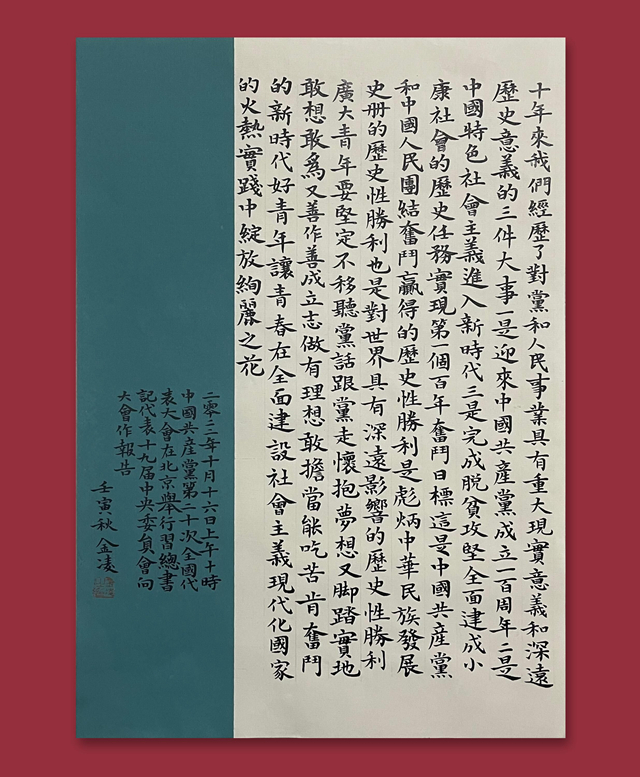 十年來我們經歷了對黨和人民事業具有重大現實意義和深遠
歷史意義的三件大事一是迎來中國共產黨成立一百周年二是
中國特色社會主義進入新時代三是完成脱貧攻堅全面建成小
康社會的歷史任務實現第一個百年奮鬥目標這是中國共產黨
和中國人民團結奮鬥贏得的歷史性勝利是彪炳中華民族發展
史册的歷史性勝利也是對世界具有深遠影響的歷史性勝利
廣大青年要堅定不移聽黨話跟黨走懷抱夢想又脚踏實地
敢想敢爲又善作善成立志做有理想敢擔當能吃苦肯奮鬥
的新時代好青年讓青春在全面建設社會主義現代化國家
的火熱實踐中綻放絢麗之花
二零二二年十月十六日上午十時
中國共產黨第二十次全國代
表大會在北京舉行習總書
記代表十九届中央委員會向
大會作報告
壬寅秋金凌